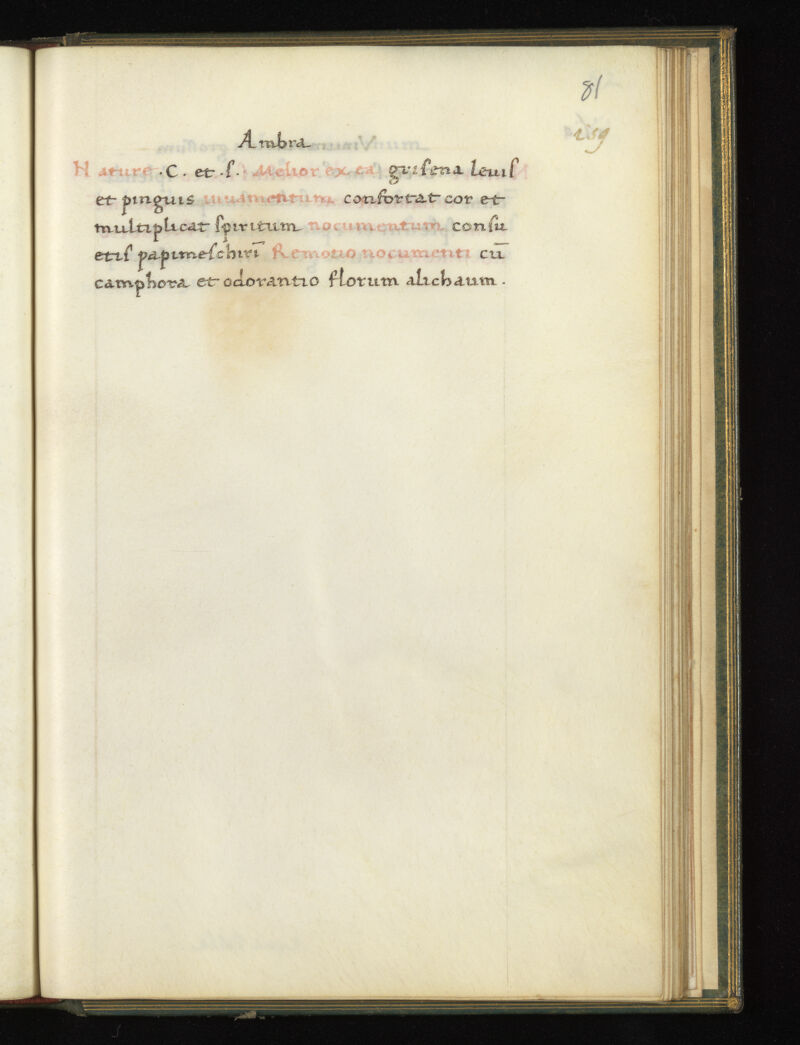 81
259
Ambra
Nature .C. et .ſ. Melior ex ea griſena leuiſ
et pinguis iuuamentum confortat cor et
multiplicat ſpiritum nocumentum conſu
etiſ papimeſchirī Remotio nocumenti cū
camphora et odorantio florum alichaum .